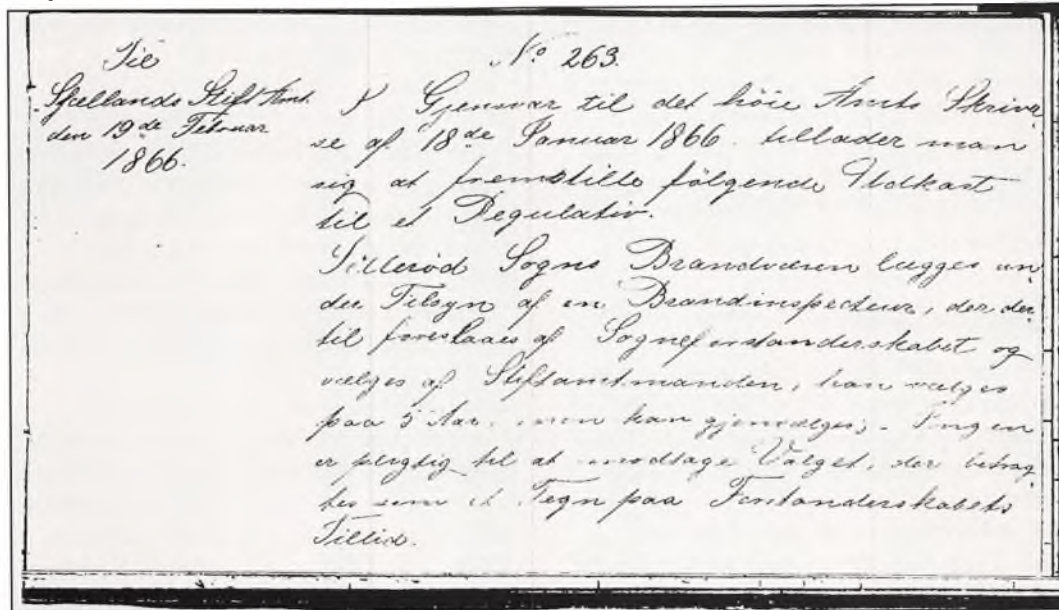 Til
Sjællands Stift Amt.
den 19de Februar
1866.
No 263.
I Gjensvar til det höie Amts Skrivel
se af 18de Januar 1866. tillader man
sig at fremstille fölgende Udkast
til et Regulativ.
Sölleröd Sogns Brandvæsen lægges un
der Tilsyn af en Brandinspecteur, der der
til foreslaaes af Sogneforstanderskabet og
vælges af Stiftamtmanden, han vælges
paa 5 Aar, men kan gjenvælges; - Ingen
er pligtig til at modtage Valget, der betrag
tes som et Tegn paa Forstanderskabets
Tillid.